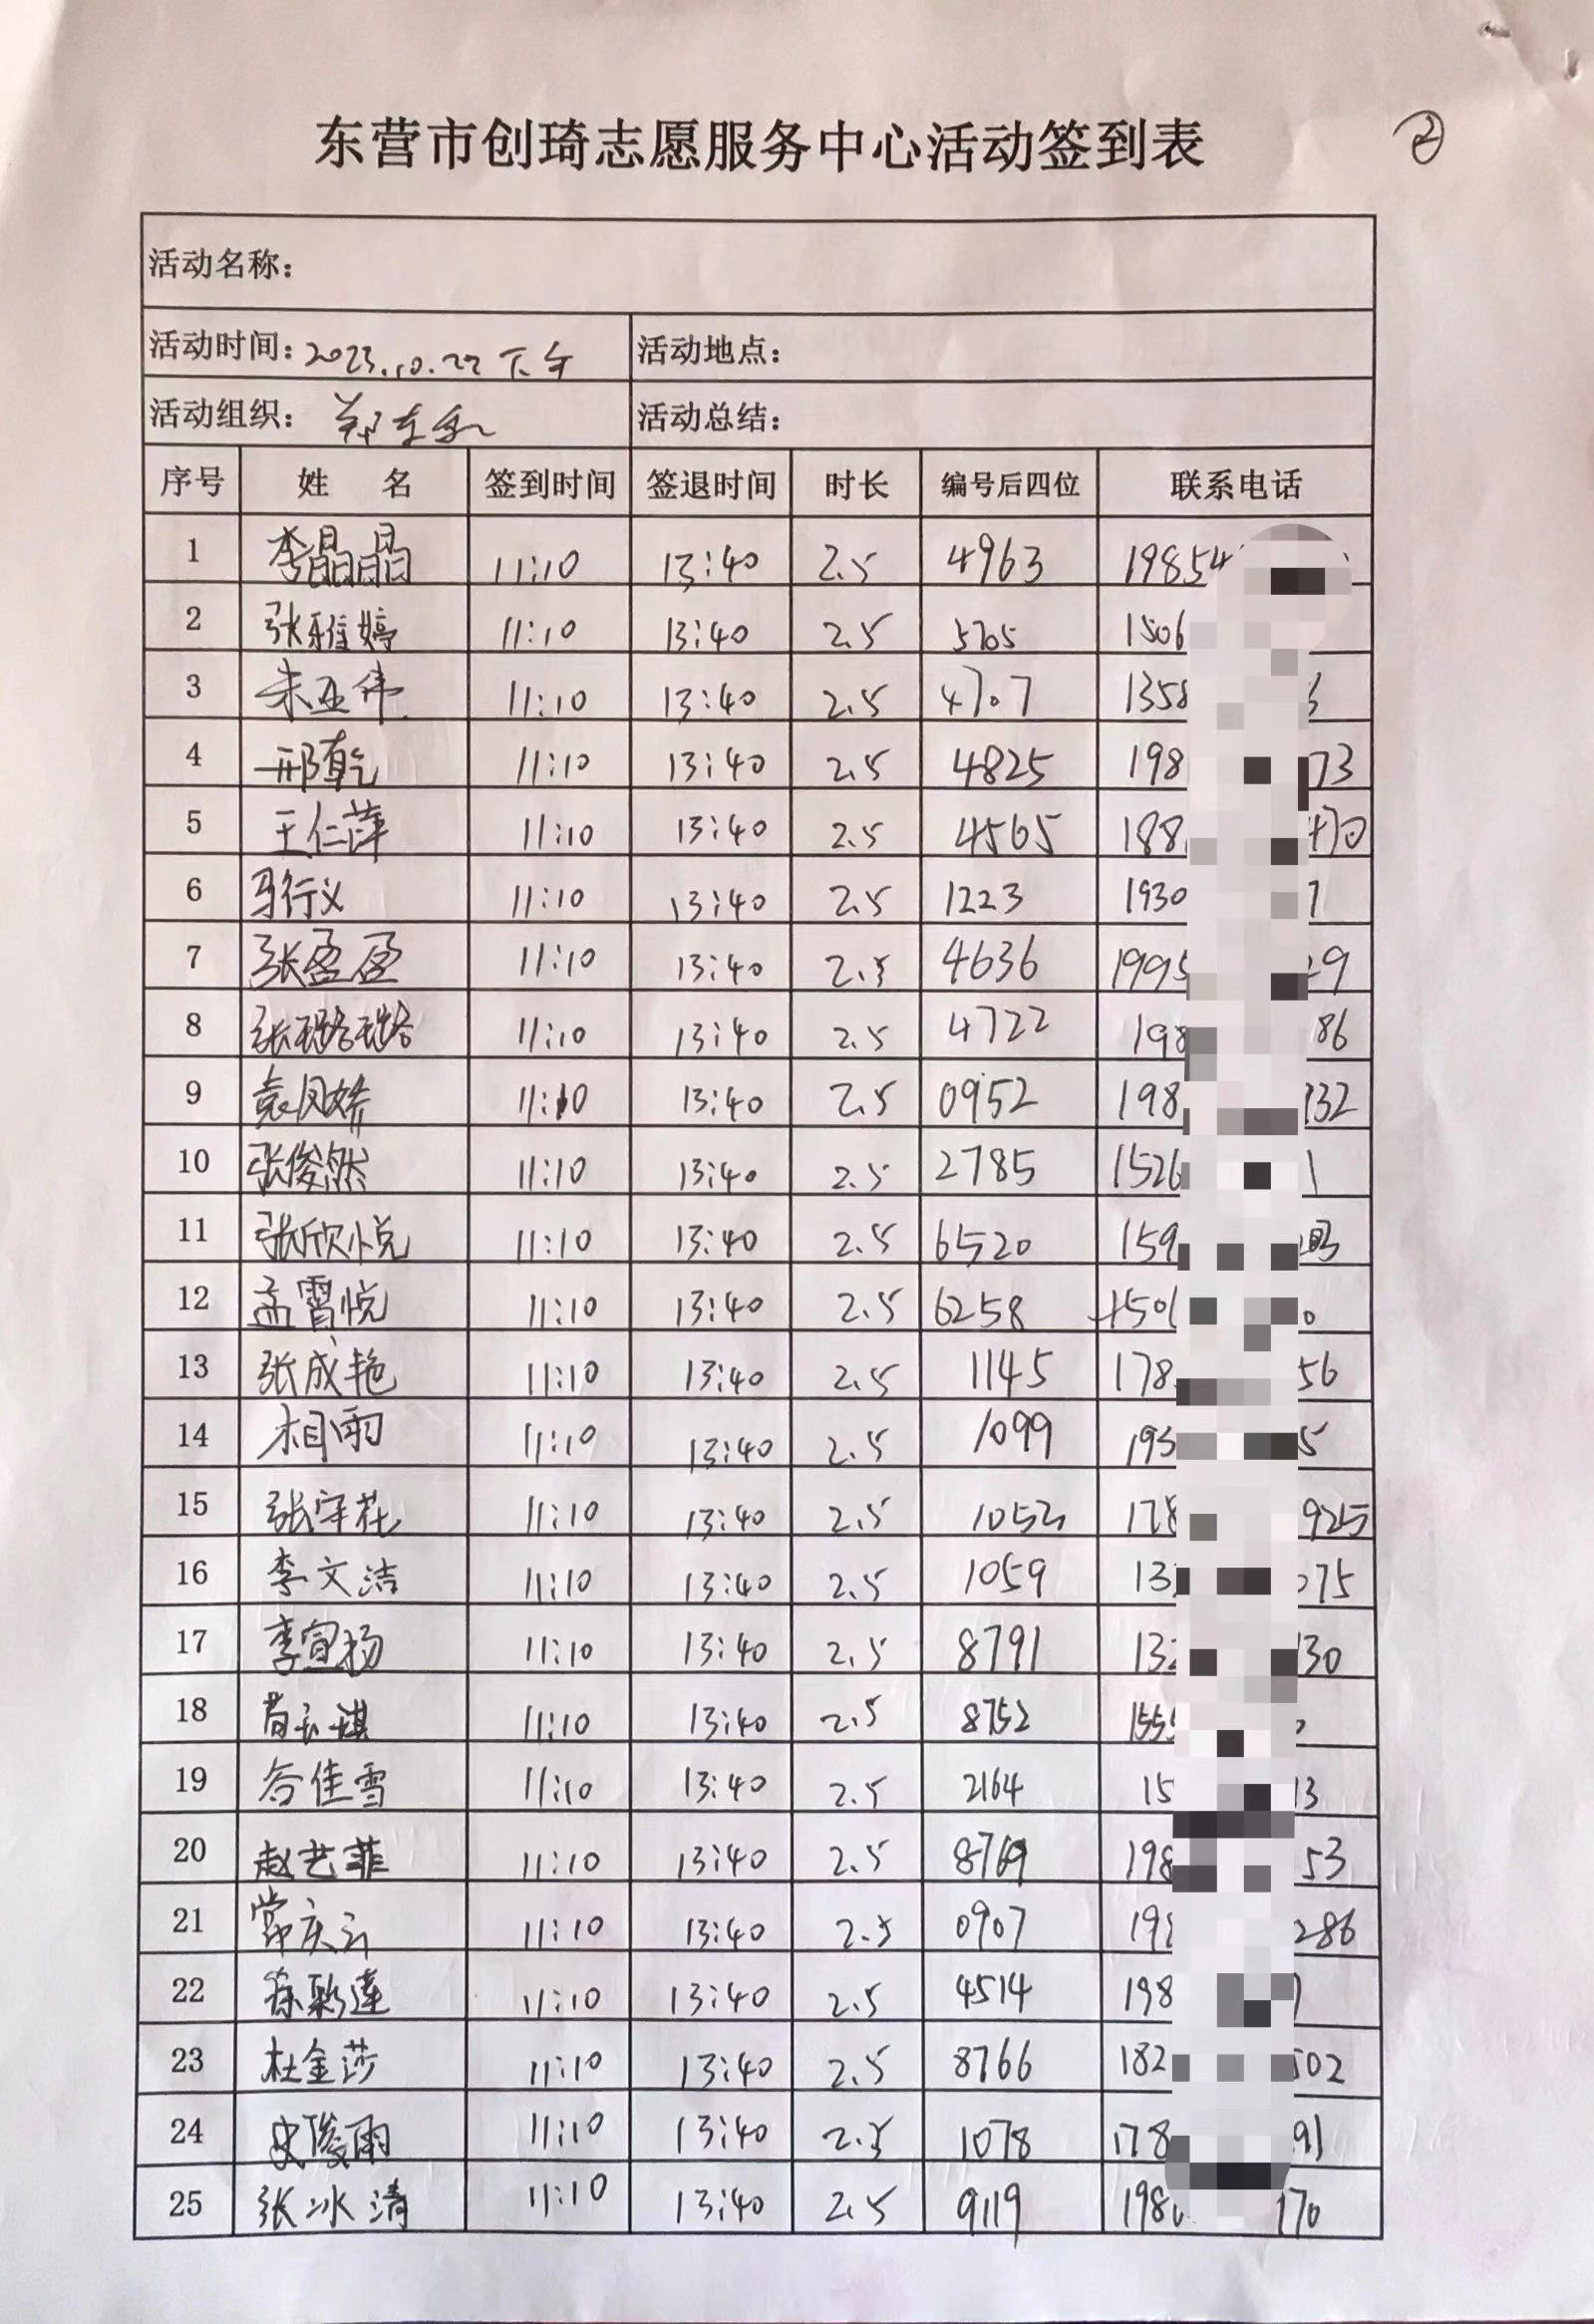 东营市创琦志愿服务中心活动签到表 ②
活动名称：
活动时间：2023.10.22 下午 活动地点：
活动组织： 活动总结：
序号 姓 名 签到时间 签退时间 时长 编号后四位 联系电话
1 李晶晶 11:10 13:40 2.5 4963 19854
2 张雅婷 11:10 13:40 2.5 5705 1506
3 朱亚伟 11:10 13:40 2.5 4707 1358 3
4 邢乾 11:10 13:40 2.5 4825 198 73
5 王仁萍 11:10 13:40 2.5 4565 188 470
6 马行义 11:10 13:40 2.5 1223 1930 7
7 张盈盈 11:10 13:40 2.5 4636 1995 29
8 张璐璐 11:10 13:40 2.5 4722 198 86
9 袁凤娇 11:10 13:40 2.5 0952 198 32
10 张俊然 11:10 13:40 2.5 2785 1526 1
11 张欣悦 11:10 13:40 2.5 6520 159
12 孟霄悦 11:10 13:40 2.5 6258 150 0
13 张成艳 11:10 13:40 2.5 1145 178 56
14 相雨 11:10 13:40 2.5 1099 193 5
15 张守花 11:10 13:40 2.5 178 925
16 李文洁 11:10 13:40 2.5 1059 13 075
17 李宣扬 11:10 13:40 2.5 8791 132 30
18 11:10 13:40 2.5 8752 1555
19 谷佳雪 11:10 13:40 2.5 2164 15 13
20 赵艺菲 11:10 13:40 2.5 8769 198 53
21 常庆云 11:10 13:40 2.5 0907 198 286
22 徐彩莲 11:10 13:40 2.5 4514 198
23 杜金莎 11:10 13:40 2.5 8766 182 502
24 史俊雨 11:10 13:40 2.5 1078 178 91
25 张冰清 11:10 13:40 2.5 9119 198 170